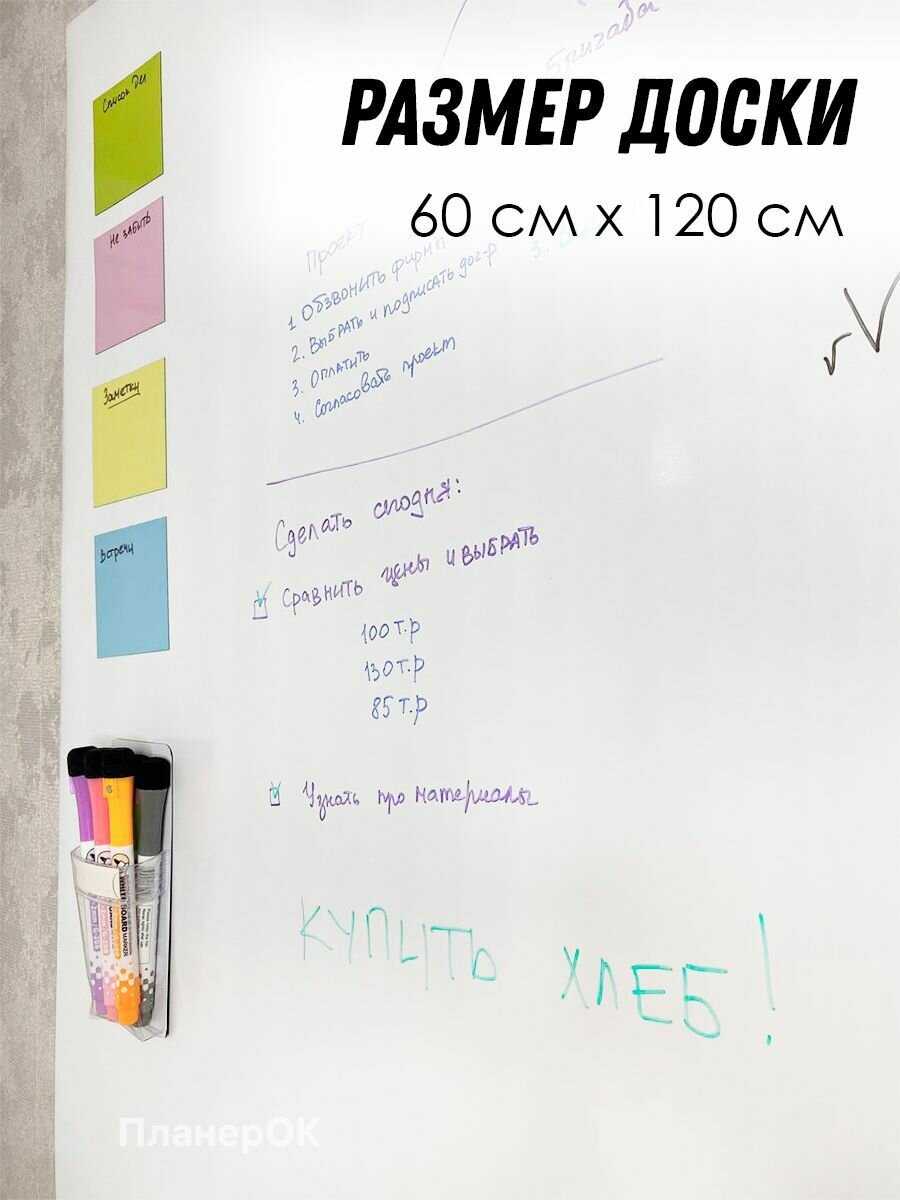 Бригада
РАЗМЕР ДОСКИ
60 см х 120 см
Список Дел
Не забыть
Заметки
Встречи
Проект
1 Обзвонить фирмы
2. Выбрать и подписать дог-р
3. Оплатить
4. Согласовать проект
3.
Сделать сегодня:
Сравнить цены и выбрать
100 т.р
130 т.р
85 т.р
Узнать про материалы
КУПИТЬ ХЛЕБ!
WHITE BOARD MARKER
ПланерОК